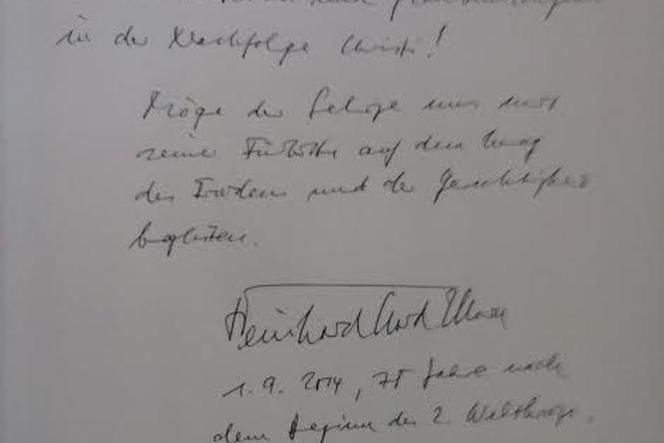 in der Nachfolge Christi!
Möge der Selige uns mit
seiner Fürbitte auf dem Weg
des Friedens und der Gerechtigkeit
begleiten.
Reinhard Card Marx
1.9. 2014, 75 Jahre nach
dem Beginn des 2. Weltkriegs.